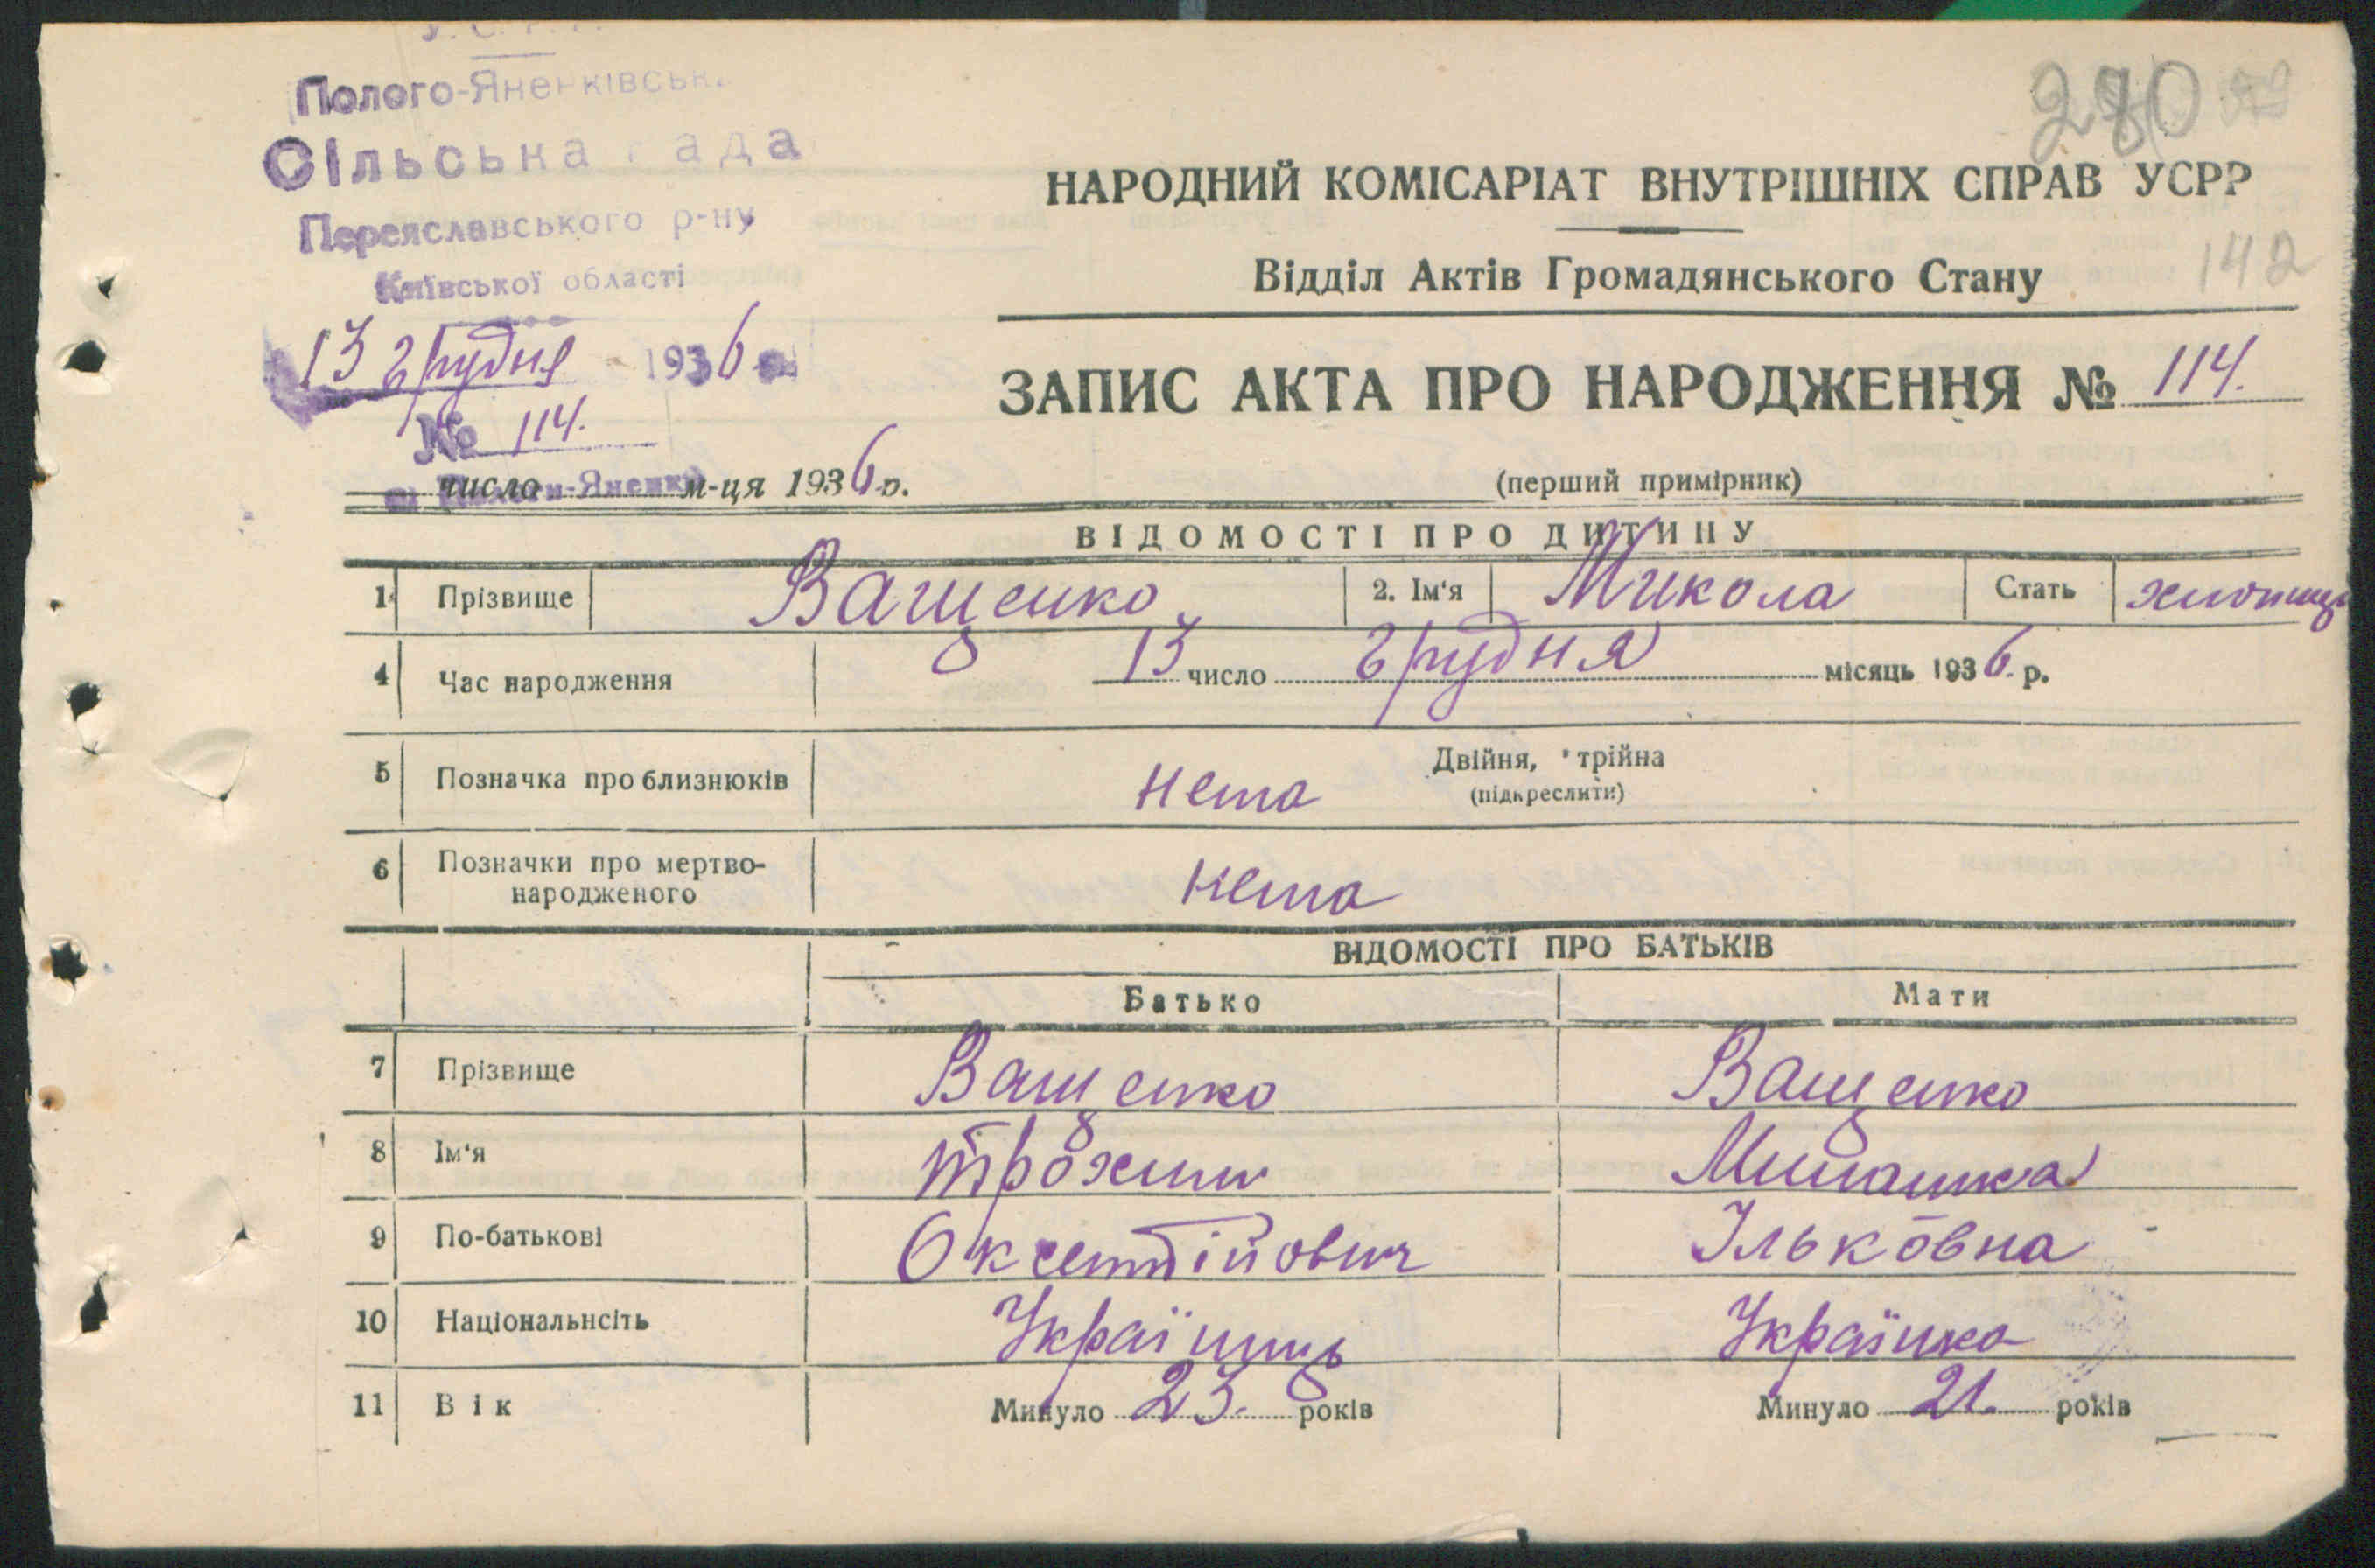 У. С. Р. Р.
Полого-Яненківська
Сільська рада
Переяславського р-ну
Київської області
13 грудня 1936
№ 114.
280
НАРОДНИЙ КОМІСАРІАТ ВНУТРІШНІХ СПРАВ УСРР
142
Відділ Актів Громадянського Стану
ЗАПИС АКТА ПРО НАРОДЖЕННЯ № 114.
число м-ця 1936 р.
(перший примірник)
ВІДОМОСТІ ПРО ДИТИНУ
1 Прізвище Ващенко 2. Ім'я Микола Стать хлопець
4 Час народження 13 число грудня місяць 1936 р.
5 Позначка про близнюків нема Двійня, трійна
(підкреслити)
6 Позначки про мертво-
народженого нема
ВІДОМОСТІ ПРО БАТЬКІВ
Батько Мати
7 Прізвище Ващенко Ващенко
8 Ім'я Трохим
9 По-батькові Оксентійович Ільковна
10 Національнсіть Українець Українка
11 Вік Минуло 23. років Минуло 21. років